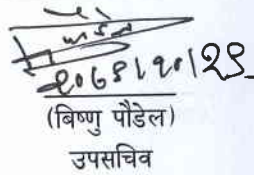 २०७९।१०।२९
(बिष्णु पौडेल)
उपसचिव